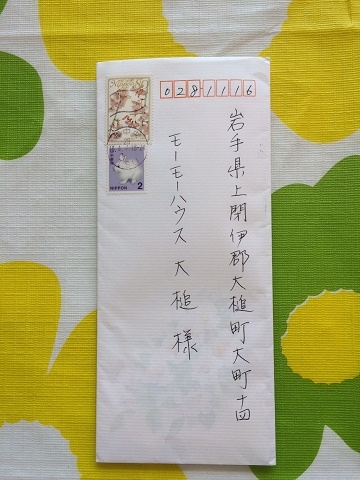 0281116
岩手県上閉伊郡大槌町大町十四
モーモーハウス大槌様
80
NIPPON 2